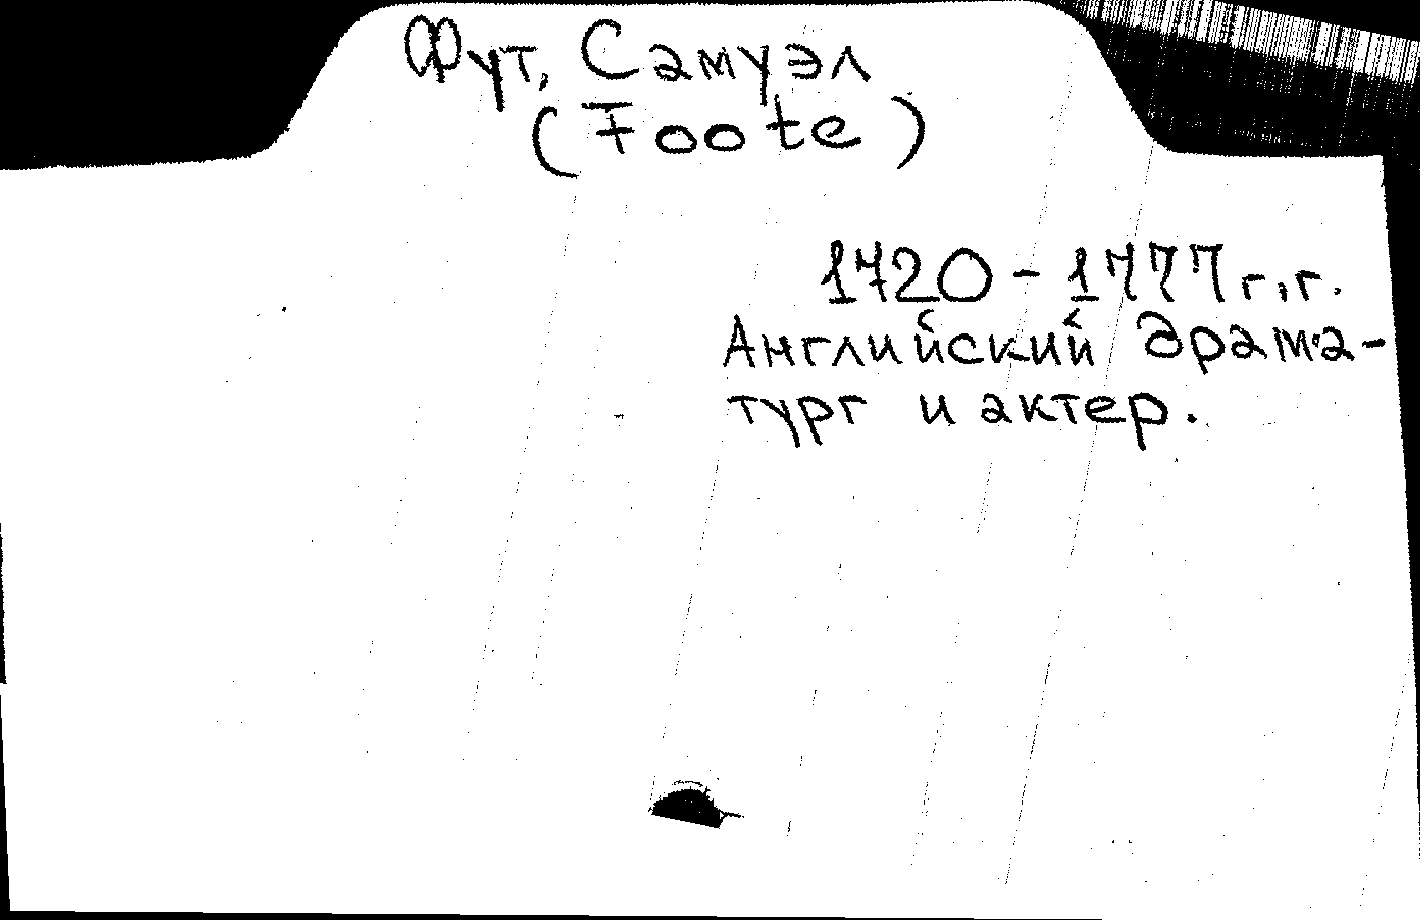 Фут, Самуэл
(Foote)
1720 - 1777 г.г.
Английский драма-
тург и актер.